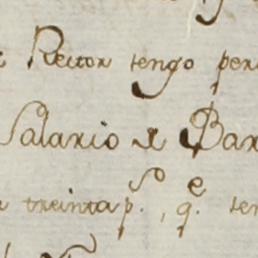 Rector tengo per
Salario de Bar
treinta p.s, q.e ten